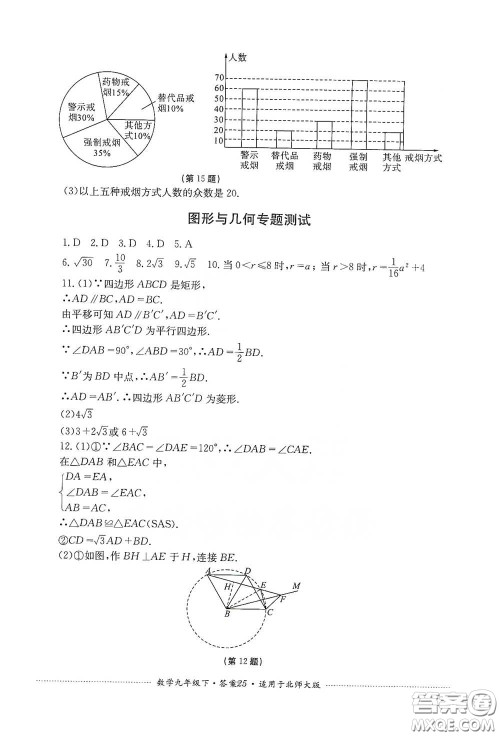 药物戒
烟15%
警示戒
烟30%
替代品戒
烟10%
其他方
式10%
强制戒烟
35%
人数
70
60
50
40
30
20
10
警示 替代品 药物 强制 其他 戒烟方式
戒烟 戒烟 戒烟 戒烟 方式
(第15题)
(3)以上五种戒烟方式人数的众数是20.
图形与几何专题测试
1. D 2. D 3. D 4. D 5. A
6. √30 7. 10/3 8. 2√3 9. √5 10. 当0<r≤8时,r=a;当r>8时,r=1/16a²+4
11. (1)∵四边形ABCD是矩形,
∴AD∥BC,AD=BC.
由平移可知AD∥B′C′,AD=B′C′.
∴四边形AB′C′D为平行四边形.
∵∠DAB=90°,∠ABD=30°,∴AD=1/2BD.
∵B′为BD中点,∴AB′=1/2BD.
∴AD=AB′.∴四边形AB′C′D为菱形.
(2)4√3
(3)3+2√3或6+√3
12. (1)①∵∠BAC=∠DAE=120°,∴∠DAB=∠CAE.
在△DAB和△EAC中,
DA=EA,
∠DAB=∠EAC,
AB=AC,
∴△DAB≌△EAC(SAS).
②CD=√3AD+BD.
(2)①如图,作BH⊥AE于H,连接BE.
A D
H E M
F
B C
(第12题)
数学九年级下·答案25·适用于北师大版